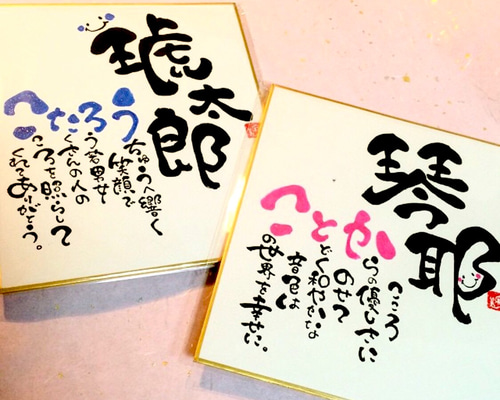 琥太郎
こたろう
ちゅうへ響く
笑顔で
う若男女
くさんの人の
ころを照らして
くれてありがとう。
琴耶
ことか
こころ
らの優しさに
のせて
どく和やかな
音色は
の世界を幸せに。